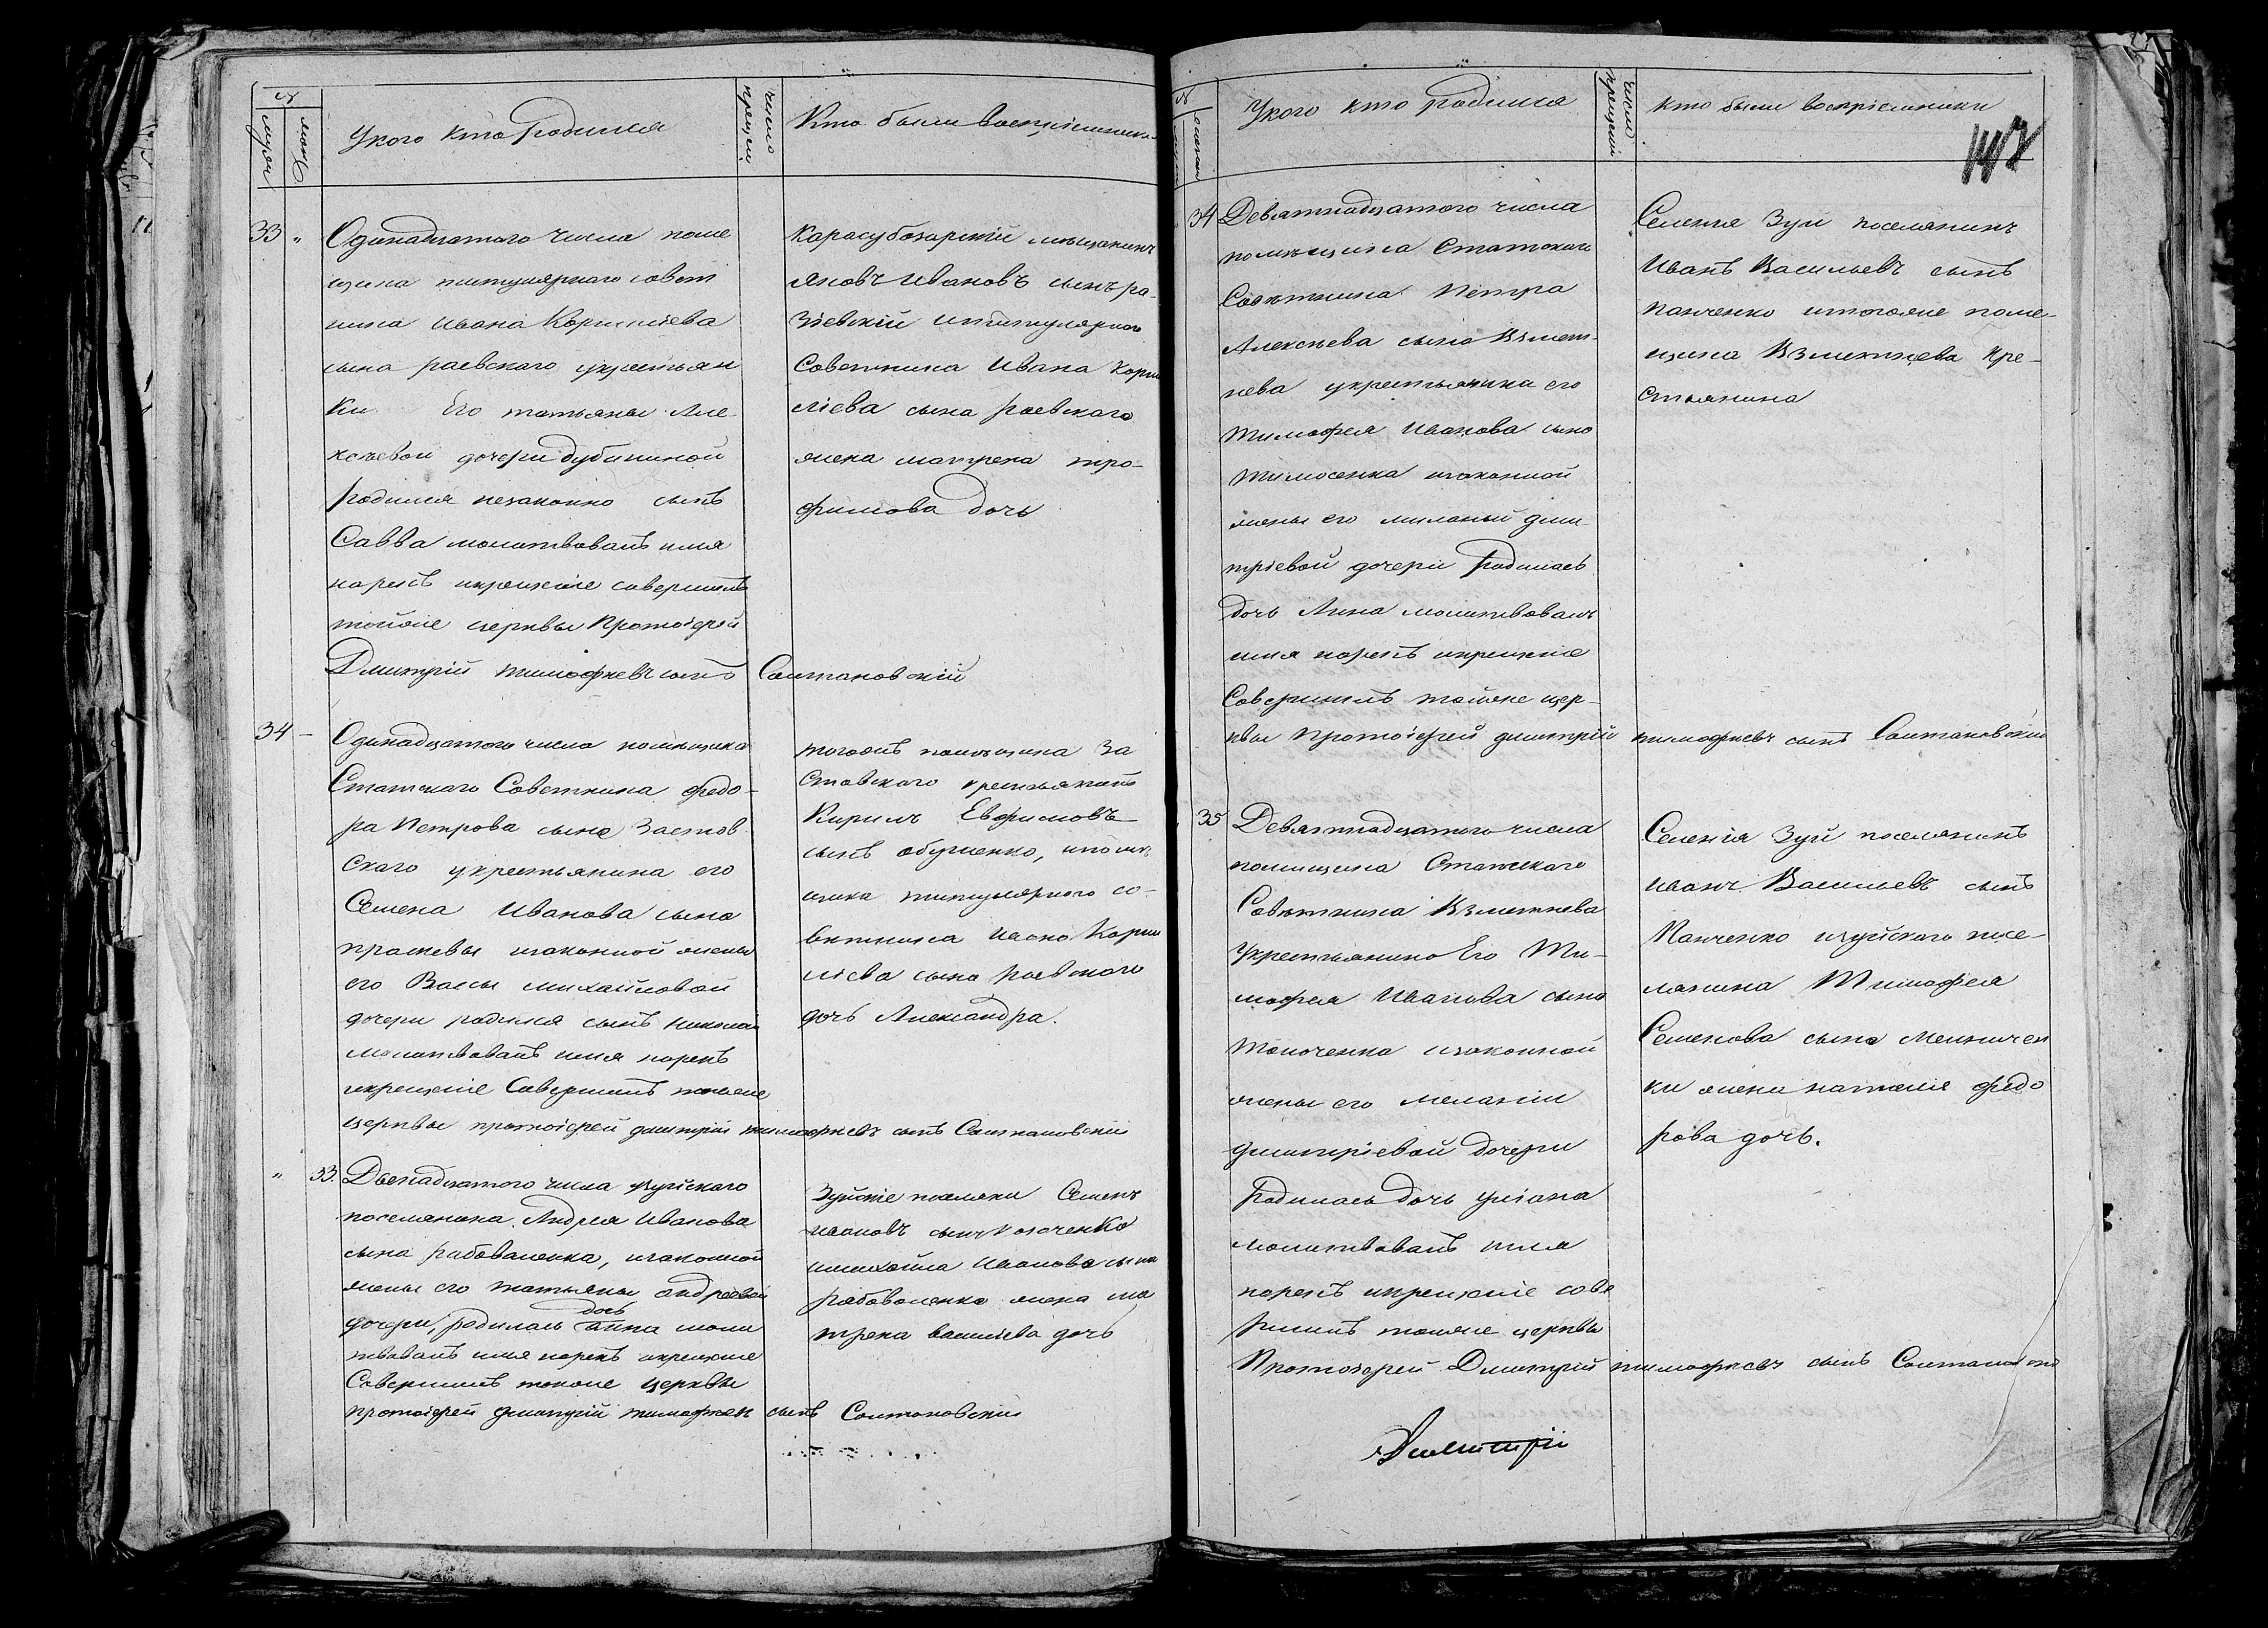 №
муж
жен
У кого кто родился
число крещен.
Кто были восприемник
33 "
Одинадцатого числа поме
щика титулярнаго совет
ника Ивана Корнилiева
сына раевскаго укрестьян
ки Его татьяны Але
ксѣевой дочери дубининой
родился незаконно сынъ
Савва молитвовалъ имя
нарекъ икрещенiе совершилъ
тойже церквы Протоiерей
Дмитрiй тимофѣевъ сынъ Солтановскiй
Карасубозарскiй мѣщанинъ
Яковъ Ивановъ сынъ ра-
зiевскiй ититулярного
Советника Ивана Корни
лiева сына раевскаго
жена матрена тро-
фимова дочь
34 -
Одинадцатого числа помѣщика
Статскаго Советника федо-
ра Петрова сына Застов
скаго укрестьянина его
Семена Иванова сына
изаконной жены
его Вассы михайловой
дочери родился сынъ николай
молитвовалъ имя нарекъ
икрещенiе Совершилъ тойже
церквы протоiерей дмитрiй тимофѣевъ сынъ Солтановскiй
тогожъ помѣщика За
стовскаго крестьянинъ
Кирилъ Евфимовъ
сынъ обушенко, ипомѣ
щика титулярного со-
ветника Ивана Корни
лiева сына раевскаго
дочь Александра.
" 33.
Двенадцатого числа зуйскаго
поселянина Андрея Иванова
сына рабоваленка, изаконной
жены его татьяны андреевой
дочь
дочери, родилась анна моли
твовалъ имя нарекъ икрещенiе
Совершилъ тойже церквы
протоiерей дмитрiй тимофѣев сынъ Солтановскiй
Зуйскiе поселяни Семенъ
ивановъ сынъ
имихайла Иванова сына
рабоваленка жена ма
трена василiева дочь
№
У кого кто родился
число крещенiи
кто были восприемники
147
34
Девятнадцатого числа
помѣщика Статскаго
Совѣтника Петра
Алексѣева сына Взмет-
нева укрестьянина его
Тимофея Иванова сына
Тимосенка изаконной
жены его миланьи дми
трiевой дочери Родилась
дочь Анна молитвовалъ
имя нарекъ икрещенiе
Совершилъ тойже цер-
квы Протоiерей дмитрiй тимофѣевъ сынъ Солтановскiй
Селенiя Зуи поселянинъ
Иванъ Васильевъ сынъ
панченко итогоже поме-
щика Взметнева кре-
стьянина
35
Девятнадцатого числа
помищика Статскаго
Совѣтника Взметнева
Укрестьянина Его Ти-
мофея Иванова сына
изаконной
жены его меланiи
дмитрiевой дочери
Родилась дочь улiана
молитвовалъ имя
нарекъ икрещенiе сове
ршилъ тойже церквы
Протоiерей Дмитрiй тимофѣевъ сынъ Солтановскiй
Селенiя Зуй поселянинъ
иванъ Васильевъ сынъ
Панченко изуйскаго посе-
лянина Тимофея
Семенова сына
ки жена наталiя федо
рова дочь.
Димитрiй